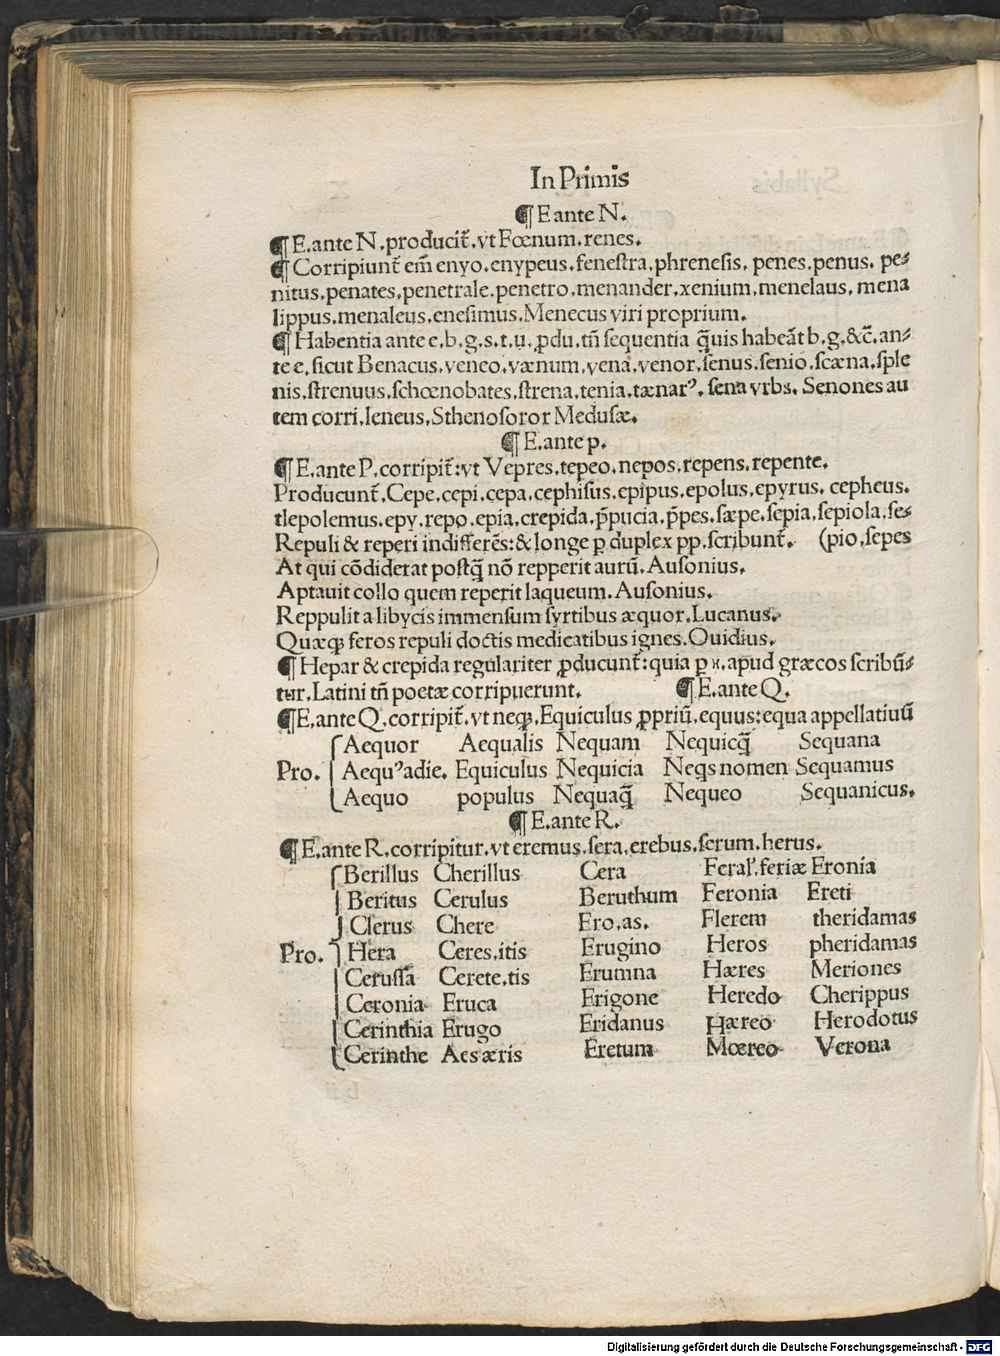 In Primis
¶ E ante N.
¶ E.ante N.producit̃.vt Fœnum.renes.
¶ Corripiunt̃ em̃ enyo.enypeus.fenestra,phrenesis, penes.penus. pe-
nitus,penates,penetrale.penetro,menander,xenium,menelaus, mena
lippus,menaleus,enesimus.Menecus viri proprium.
¶ Habentia ante e,b,g,s,t,u, ꝓdu,tñ sequentia q̃uis habeãt b,g,&c̃.an-
te e, sicut Benacus,veneo,vænum,vena,venor,senus,senio,scæna,sple
nis,strenuus,schœnobates,strena,tenia,tænarꝰ, sena vrbs. Senones au
tem corri.Ieneus,Sthenosoror Medusæ.
¶ E.ante p.
¶ E.ante P.corripit̃:vt Vepres,tepeo.nepos.repens.repente.
Producunt̃.Cepe,cepi,cepa,cephisus,epipus,epolus,epyrus, cepheus.
tlepolemus,epy,repo,epia,crepida,p̃pucia,p̃pes.sæpe.sepia,sepiola,se-
Repuli & reperi indifferẽs:& longe ꝑ duplex pp.scribunt̃. (pio,sepes
At qui cõdiderat postq̃ nõ repperit aurũ.Ausonius.
Aptauit collo quem reperit laqueum.Ausonius.
Reppulit a libycis immensum syrtibus æquor.Lucanus.
Quæqꝫ feros repuli doctis medicatibus ignes.Ouidius.
¶ Hepar & crepida regulariter ꝓducunt̃:quia ꝑ ϰ.apud græcos scribũ-
tur.Latini tñ poetæ corripuerunt. ¶ E.ante Q.
¶ E.ante Q.corripit̃.vt neqꝫ,Equiculus ꝓpriũ,equus:equa appellatiuũ
Aequor Aequalis Nequam Nequicq̃ Sequana
Pro. Aequꝰadie. Equiculus Nequicia Neqs nomen Sequamus
Aequo populus Nequaq̃ Nequeo Sequanicus.
¶ E.ante R.
¶ E.ante R.corripitur.vt eremus.fera,erebus.ferum.herus.
Berillus Cherillus Cera Feral̓.feriæ Eronia
Beritus Cerulus Beruthum Feronia Ereti
Clerus Chere Ero,as. Flerem theridamas
Pro. Hera Ceres,itis Erugino Heros pheridamas
Cerussa Cerete,tis Erumna Hæres Meriones
Ceronia Eruca Erigone Heredo Cherippus
Cerinthia Erugo Eridanus Hæreo Herodotus
Cerinthe Aes æris Eretum Mœreo Verona
Digitalisierung gefördert durch die Deutsche Forschungsgemeinschaft - DFG